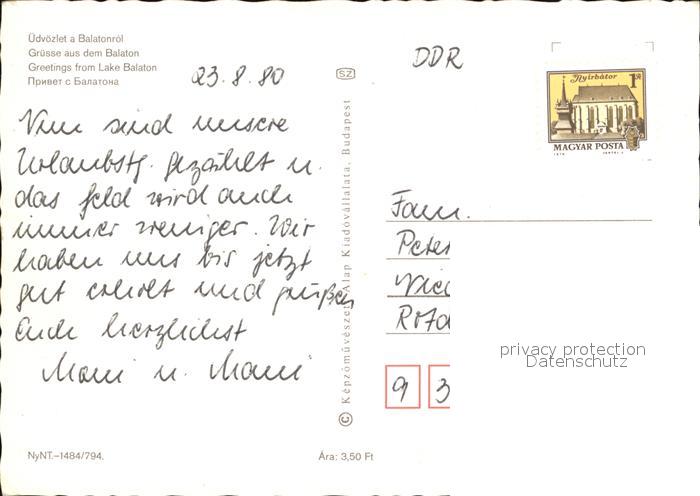 Üdvözlet a Balatonról
Grüsse aus dem Balaton
Greetings from Lake Balaton
Привет с Балатона
23.8.80
Nun sind unsere
Urlaubstg. gezählt u.
das Geld wird auch
immer weniger. Wir
haben uns bis jetzt
gut erholt und grüßen
Euch herzlichst
u.
SZ
© Képzőművészeti Alap Kiadóvállalata, Budapest
DDR
Nyírbátor 1 Ft
MAGYAR POSTA
Fam.
Peter
9 3
privacy protection
Datenschutz
NyNT.–1484/794.
Ára: 3,50 Ft